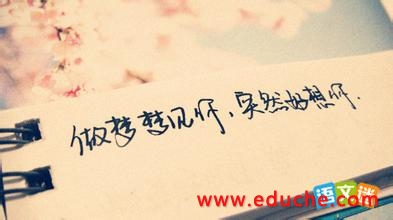 做梦梦见你，突然好想你．
语文迷
www.eduche.com